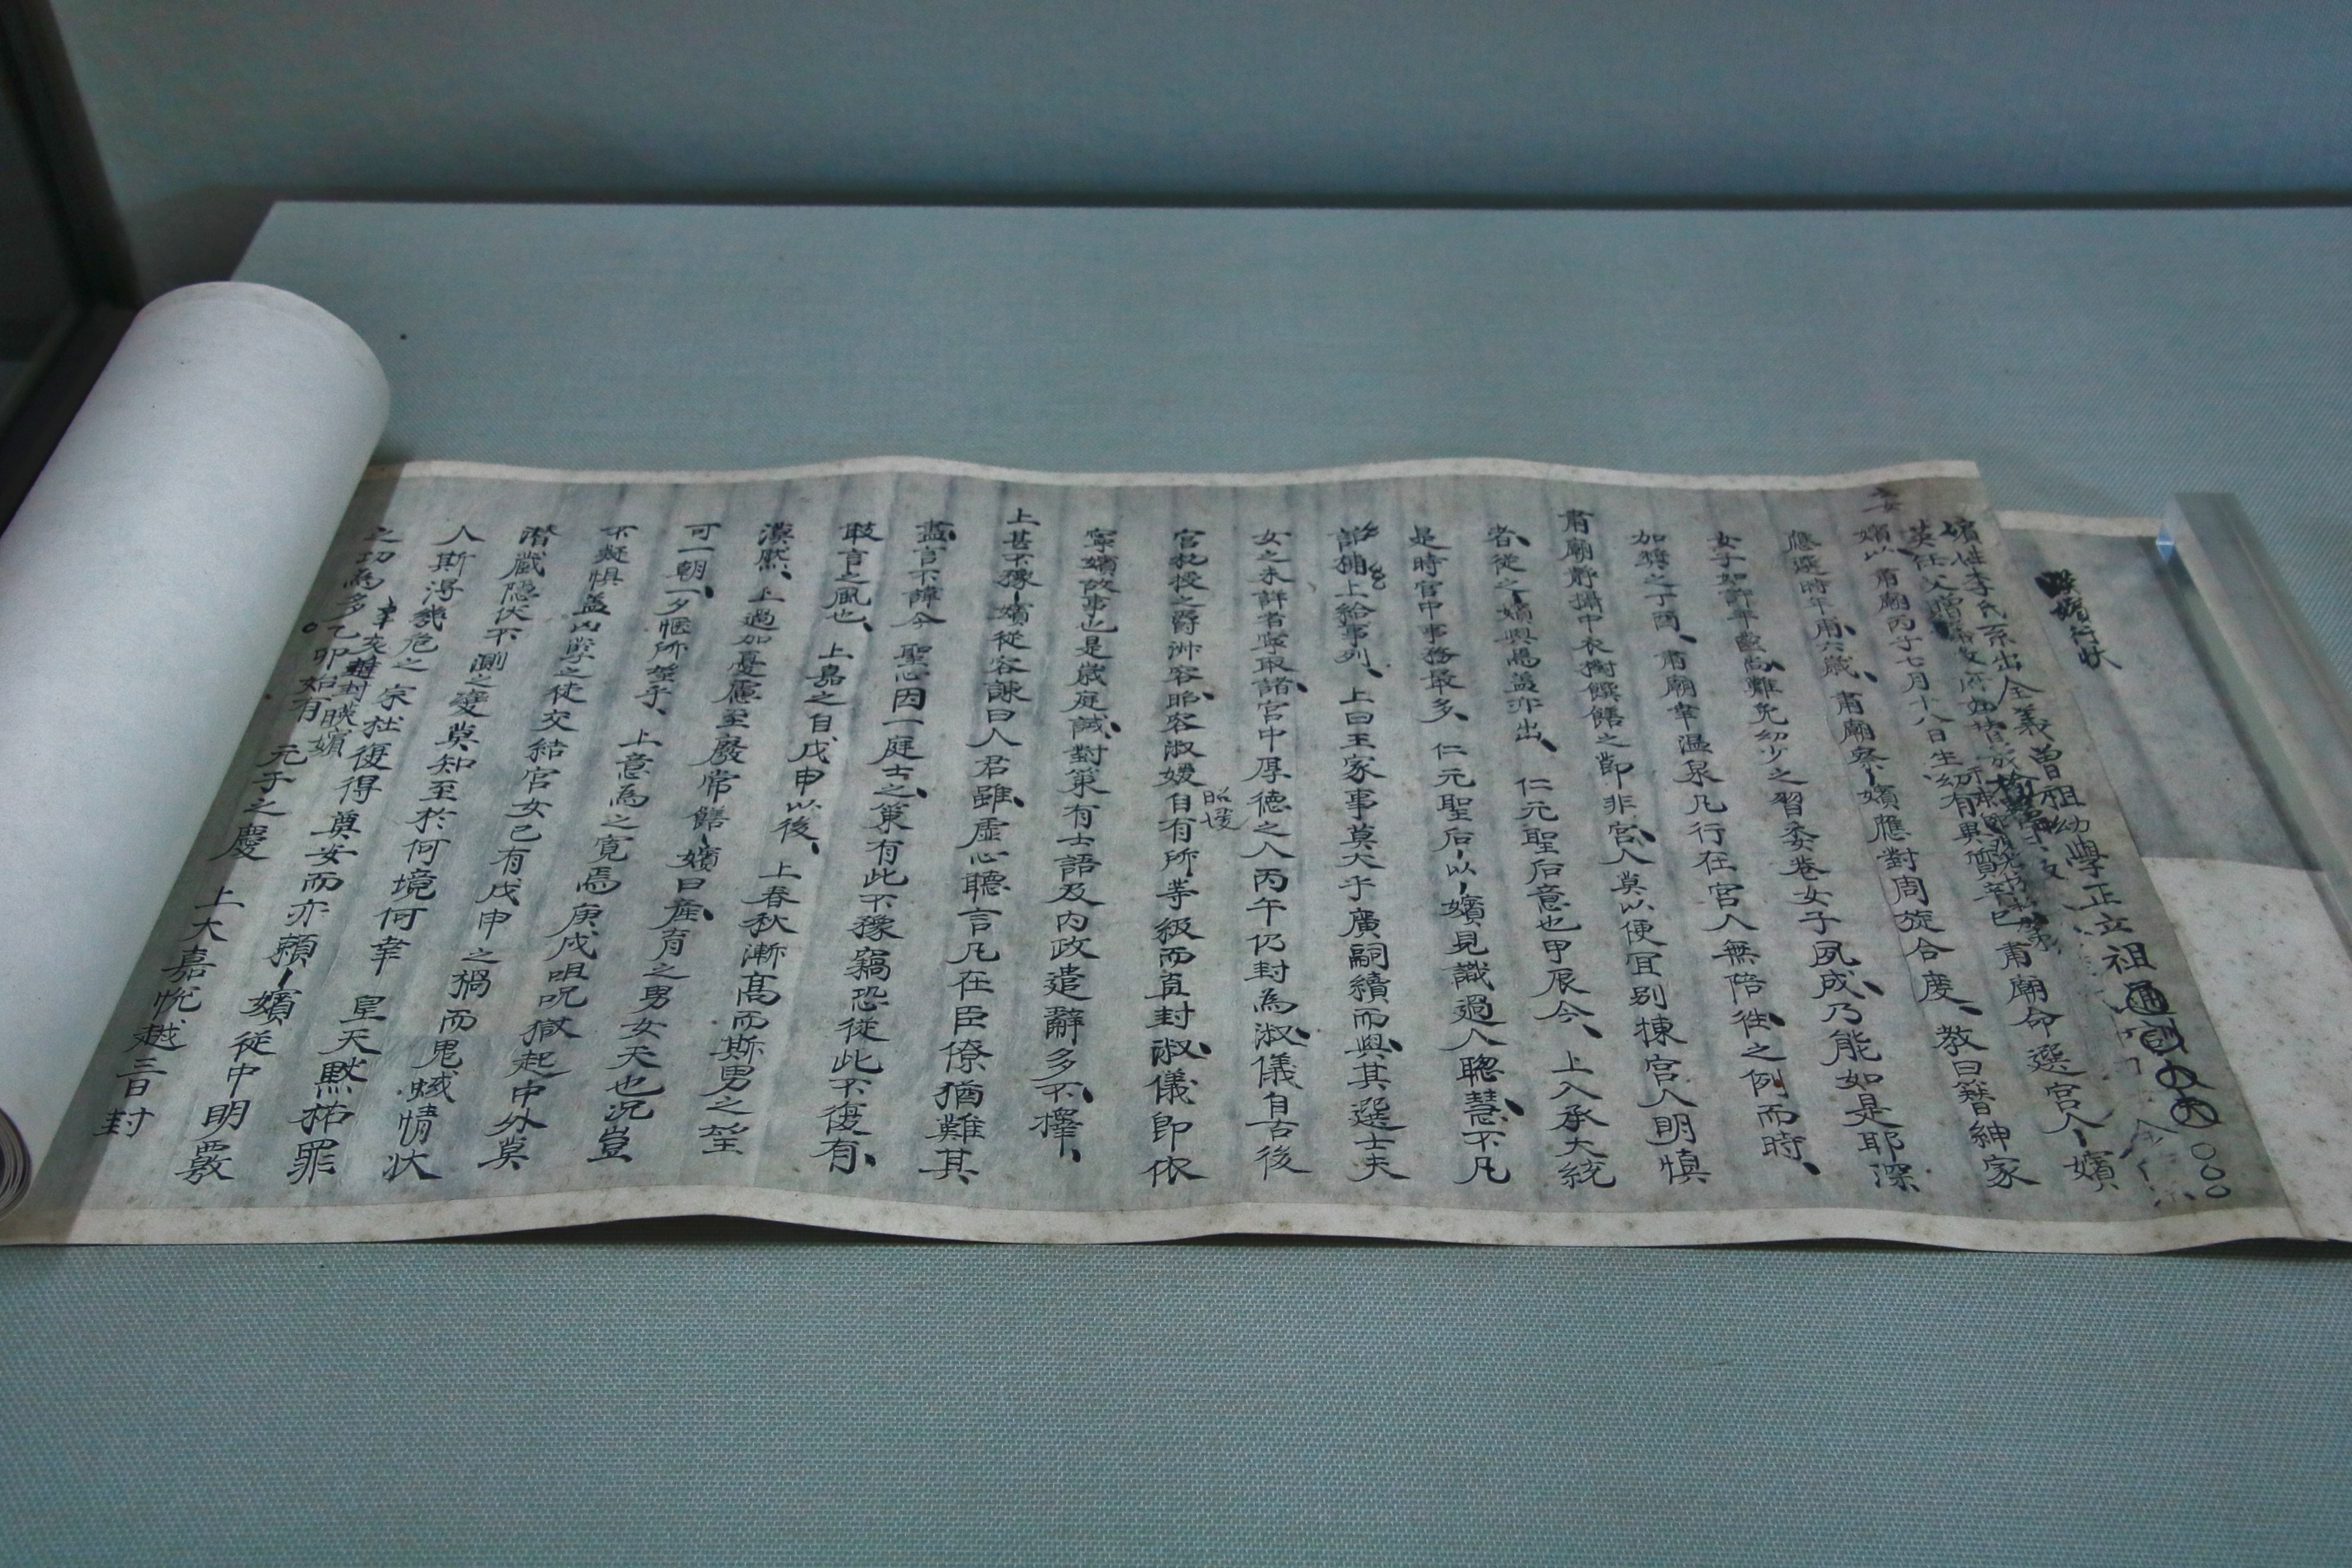 暎嬪行狀
嬪姓李氏系出全義曾祖幼學正立祖通
英任父贈
嬪以 肅廟丙子七月十八日生幼有異質辛巳 肅廟命選宮人嬪
應選時年甫六歲 肅廟察嬪應對周旋合度 教曰簪紳家
女子如許年齒尚難免幼少之習委巷女子夙成乃能如是耶深
加奬之丁酉 肅廟幸溫泉凡行在宮人無陪往之例而時
肅廟靜攝中衣襨饌饍之節非宮人莫以便宜別揀宮人明愼
者從之嬪與焉蓋亦出 仁元聖后意也甲辰今 上入承大統
是時宮中事務最多 仁元聖后以嬪見識過人聰慧不凡
上給事列 上曰王家事莫大乎廣嗣續而與其選士夫
女之未詳者寧取諸宮中厚德之人丙午仍封為淑儀自古後
宮敎授之爵淑容昭容淑媛自有所等級而直封淑儀卽依
昭媛
寧嬪故事也是歲庭試對策有士語及內政遣辭多不擇
上甚不豫嬪從容諫曰人君雖虛心聽言凡在臣僚猶難其
盡言不諱今 聖心因一庭士之策有此不豫竊恐從此不復有
敢言之風也 上嘉之自戊申以後 上春秋漸高而斯男之望
漠然 上過加憂慮至廢常饍嬪曰產育之男女天也況豈
可一朝一夕愜所望乎 上意為之寬焉庚戌咀呪獄起中外莫
不疑懼蓋凶孼之徒交結宮女已有戊申之禍而鬼蜮情狀
潛藏隱伏不測之變莫知至於何境何幸 皇天默祐罪
人斯得幾危之 宗社復得奠安而亦賴嬪從中明覈
之功為多乙卯始有 元子之慶 上大嘉悅越三日封
辛亥進封暎嬪